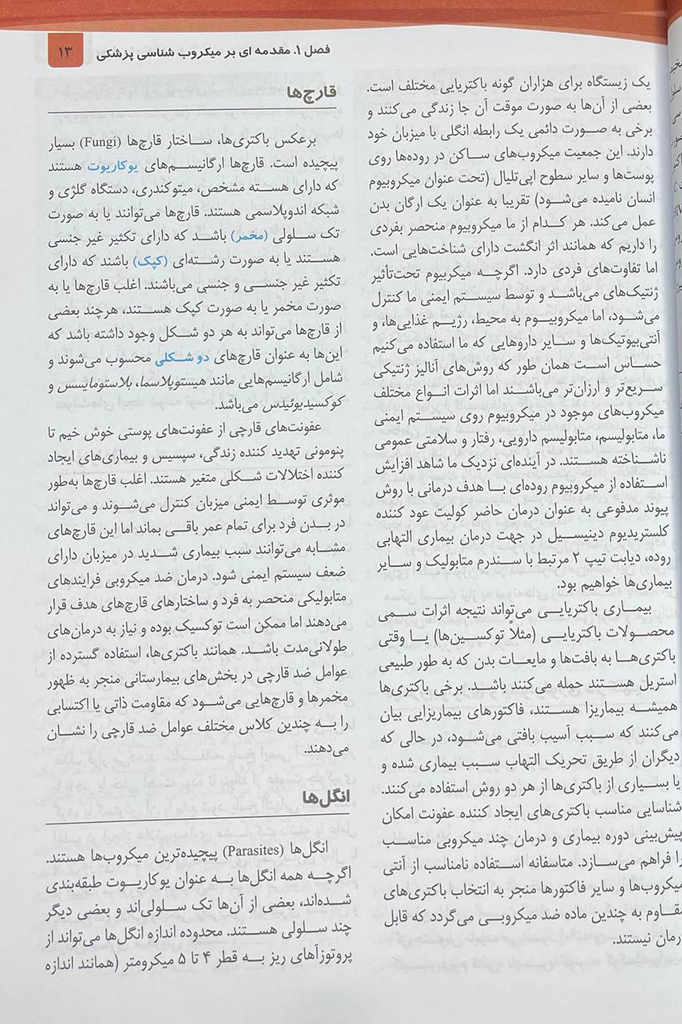 فصل ۱. مقدمه ای بر میکروب شناسی پزشکی
۱۳
یک زیستگاه برای هزاران گونه باکتریایی مختلف است.
بعضی از آن‌ها به صورت موقت آن جا زندگی می‌کنند و
برخی به صورت دائمی یک رابطه انگلی با میزبان خود
دارند. این جمعیت میکروب‌های ساکن در روده‌ها روی
پوست‌ها و سایر سطوح اپی‌تلیال (تحت عنوان میکروبیوم
انسان نامیده می‌شود) تقریبا به عنوان یک ارگان بدن
عمل می‌کند. هر کدام از ما میکروبیوم منحصر بفردی
را داریم که همانند اثر انگشت دارای شناخت‌هایی است.
اما تفاوت‌های فردی دارد. اگرچه میکربیوم تحت‌تأثیر
ژنتیک‌های می‌باشد و توسط سیستم ایمنی ما کنترل
می‌شود، اما میکروبیوم به محیط، رژیم غذایی‌ها، و
آنتی‌بیوتیک‌ها و سایر داروهایی که ما استفاده می‌کنیم
حساس است همان طور که روش‌های آنالیز ژنتیکی
سریع‌تر و ارزان‌تر می‌باشند اما اثرات انواع مختلف
میکروب‌های موجود در میکروبیوم روی سیستم ایمنی
ما، متابولیسم، متابولیسم دارویی، رفتار و سلامتی عمومی
ناشناخته هستند. در آینده‌ای نزدیک ما شاهد افزایش
استفاده از میکروبیوم روده‌ای با هدف درمانی با روش
پیوند مدفوعی به عنوان درمان حاضر کولیت عود کننده
کلستریدیوم دینیسیل در جهت درمان بیماری التهابی
روده، دیابت تیپ ۲ مرتبط با سندرم متابولیک و سایر
بیماری‌ها خواهیم بود.
بیماری باکتریایی می‌تواند نتیجه اثرات سمی
محصولات باکتریایی (مثلاً توکسین‌ها) یا وقتی
باکتری‌ها به بافت‌ها و مایعات بدن که به طور طبیعی
استریل هستند حمله می‌کنند باشد. برخی باکتری‌ها
همیشه بیماریزا هستند، فاکتورهای بیماریزایی بیان
می‌کنند که سبب آسیب بافتی می‌شود، در حالی که
دیگران از طریق تحریک التهاب سبب بیماری شده و
یا بسیاری از باکتری‌ها از هر دو روش استفاده می‌کنند.
شناسایی مناسب باکتری‌های ایجاد کننده عفونت امکان
پیش‌بینی دوره بیماری و درمان چند میکروبی مناسب
را فراهم می‌سازد. متاسفانه استفاده نامناسب از آنتی
میکروب‌ها و سایر فاکتورها منجر به انتخاب باکتری‌های
مقاوم به چندین ماده ضد میکروبی می‌گردد که قابل
درمان نیستند.
قارچ‌ها
برعکس باکتری‌ها، ساختار قارچ‌ها (Fungi) بسیار
پیچیده است. قارچ‌ها ارگانیسم‌های یوکاریوت هستند
که دارای هسته مشخص، میتوکندری، دستگاه گلژی و
شبکه اندوپلاسمی هستند. قارچ‌ها می‌توانند یا به صورت
تک سلولی (مخمر) باشد که دارای تکثیر غیر جنسی
هستند یا به صورت رشته‌ای (کپک) باشند که دارای
تکثیر غیر جنسی و جنسی می‌باشند. اغلب قارچ‌ها یا به
صورت مخمر یا به صورت کپک هستند، هرچند بعضی
از قارچ‌ها می‌تواند به هر دو شکل وجود داشته باشد که
این‌ها به عنوان قارچ‌های دو شکلی محسوب می‌شوند و
شامل ارگانیسم‌هایی مانند هیستوپلاسما، بلاستومایسس و
کوکسیدیوئیدس می‌باشد.
عفونت‌های قارچی از عفونت‌های پوستی خوش خیم تا
پنومونی تهدید کننده زندگی، سپسیس و بیماری‌های ایجاد
کننده اختلالات شکلی متغیر هستند. اغلب قارچ‌ها به‌طور
موثری توسط ایمنی میزبان کنترل می‌شوند و می‌تواند
در بدن فرد برای تمام عمر باقی بماند اما این قارچ‌های
مشابه می‌توانند سبب بیماری شدید در میزبان دارای
ضعف سیستم ایمنی شود. درمان ضد میکروبی فرایندهای
متابولیکی منحصر به فرد و ساختارهای قارچ‌های هدف قرار
می‌دهند اما ممکن است توکسیک بوده و نیاز به درمان‌های
طولانی‌مدت باشد. همانند باکتری‌ها، استفاده گسترده از
عوامل ضد قارچی در بخش‌های بیمارستانی منجر به ظهور
مخمرها و قارچ‌هایی می‌شود که مقاومت ذاتی یا اکتسابی
را به چندین کلاس مختلف عوامل ضد قارچی را نشان
می‌دهند.
انگل‌ها
انگل‌ها (Parasites) پیچیده‌ترین میکروب‌ها هستند.
اگرچه همه انگل‌ها به عنوان یوکاریوت طبقه‌بندی
شده‌اند، بعضی از آن‌ها تک سلولی‌اند و بعضی دیگر
چند سلولی هستند. محدوده اندازه انگل‌ها می‌تواند از
پروتوزآهای ریز به قطر ۴ تا ۵ میکرومتر (همانند اندازه